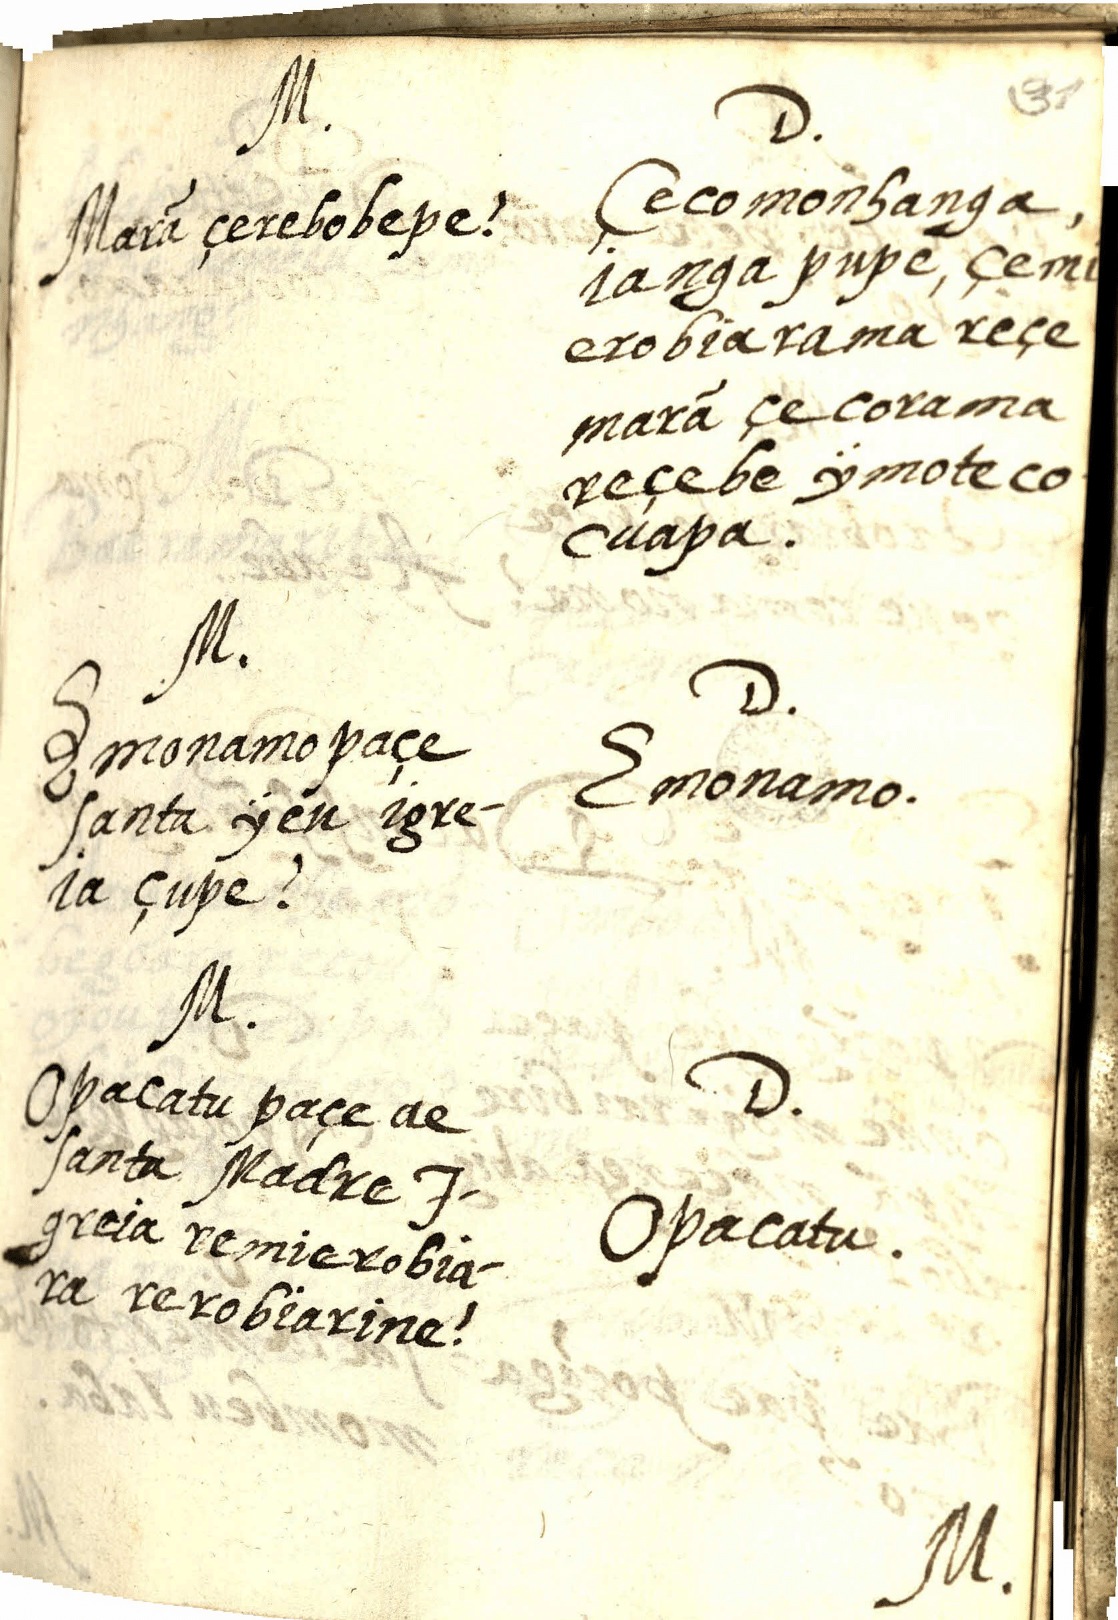 31
M.
Marã çerebobepe?
D.
Çecomonhanga,
ianga pupê, çemi
erobiarama reçe
marã çecorama
reçebe ÿmoteco
cuapa.
M.
Emonamo paçe
santa ÿeu igre-
ia çupe?
D.
Emonamo.
M.
Opacatu paçe ae
santa Madre I-
greia remierobia-
ra rerobiarine?
D.
Opacatu.
M.